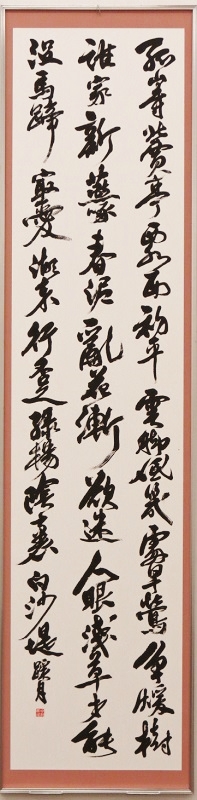 孤山寺北賈亭西水面初平雲脚低幾處早鶯争暖樹
誰家新燕啄春泥亂花漸欲迷人眼淺草才能
没馬蹄最愛湖東行不足緑楊陰裏白沙堤